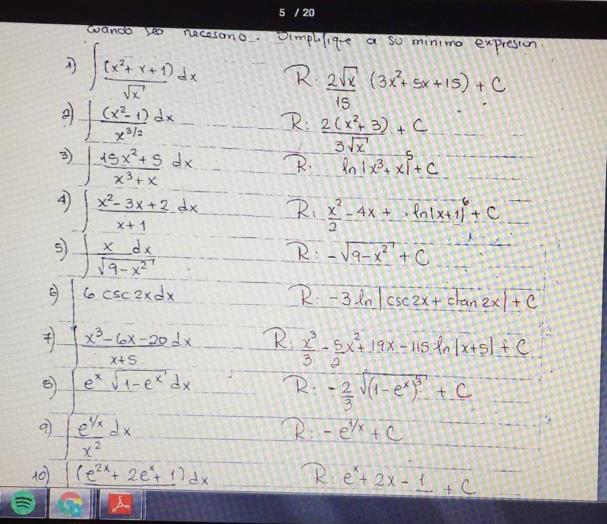 5 / 20
cuando sea necesario. Simplifique a su mínima expresión.
1) ∫ (x²+x+1) dx / √x   R: 2√x/15 (3x²+5x+15) + C
2) ∫ (x²-1) dx / x^3/2   R: 2(x²+3)/3√x + C
3) ∫ 15x²+5 dx / x³+x   R. ln|x³+x|⁵ + C
4) ∫ x²-3x+2 dx / x+1   R: x²/2 - 4x + ln|x+1|⁶ + C
5) ∫ x dx / √9-x²   R: -√9-x² + C
6) ∫ 6 csc 2x dx   R: -3 ln|csc2x + ctan2x| + C
7) ∫ x³-6x-20 dx / x+5   R: x³/3 - 5x²/2 + 19x - 115 ln|x+5| + C
8) ∫ eˣ √1-eˣ dx   R: -2/3 √(1-eˣ)³ + C
9) ∫ e^1/x dx / x²   R: -e^1/x + C
10) ∫ (e²ˣ + 2eˣ + 1) dx   R: eˣ + 2x - 1 + C